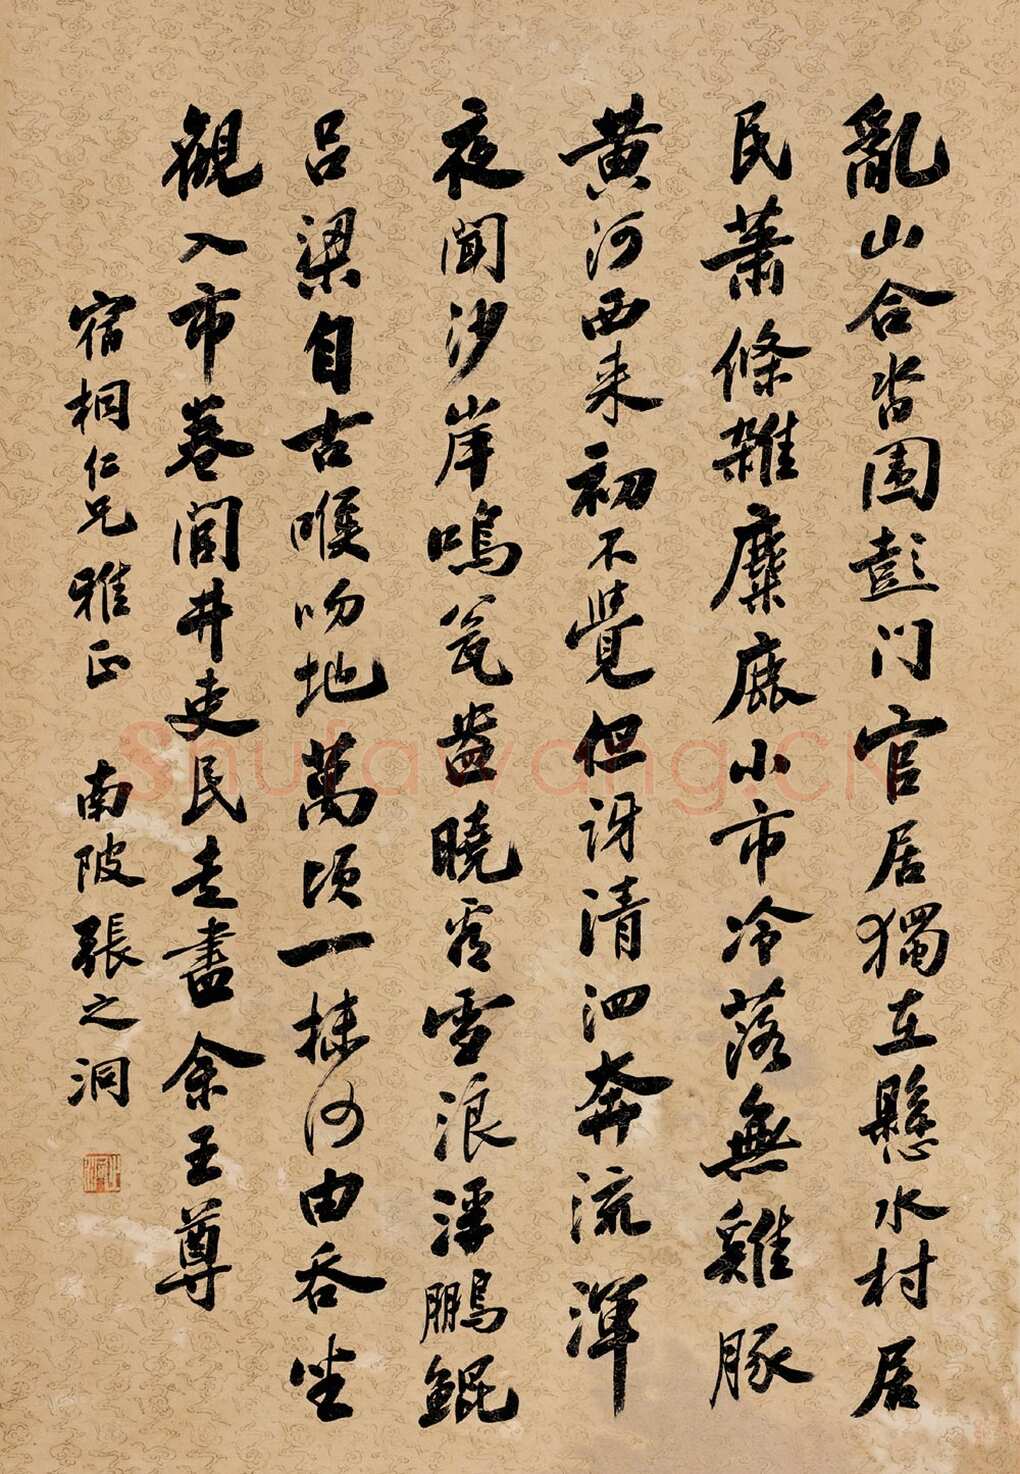 亂山合沓圍彭門官居獨在懸水村居
民蕭條雜麋鹿小市冷落無雞豚
黃河西来初不覺但訝清泗奔流渾
夜聞沙岸鳴瓮盎曉看雪浪浮鵬鯤
呂梁自古喉吻地萬頃一抹何由吞坐
觀入市卷閭井吏民走盡余王尊
宿桐仁兄雅正 南陂張之洞
shufawang.CN